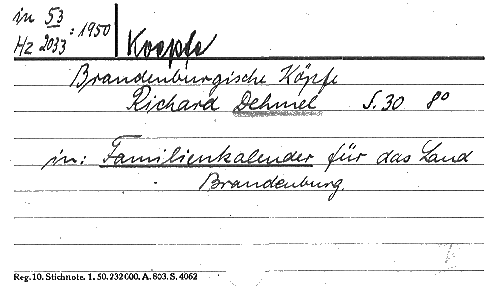 in 53
Hz 2033 : 1950
Koepfe
Brandenburgische Köpfe
Richard Dehmel S. 30 8°
in: Familienkalender für das Land
Brandenburg.
Reg. 10. Stichnote. 1. 50. 232 000. A. 803. S. 4062